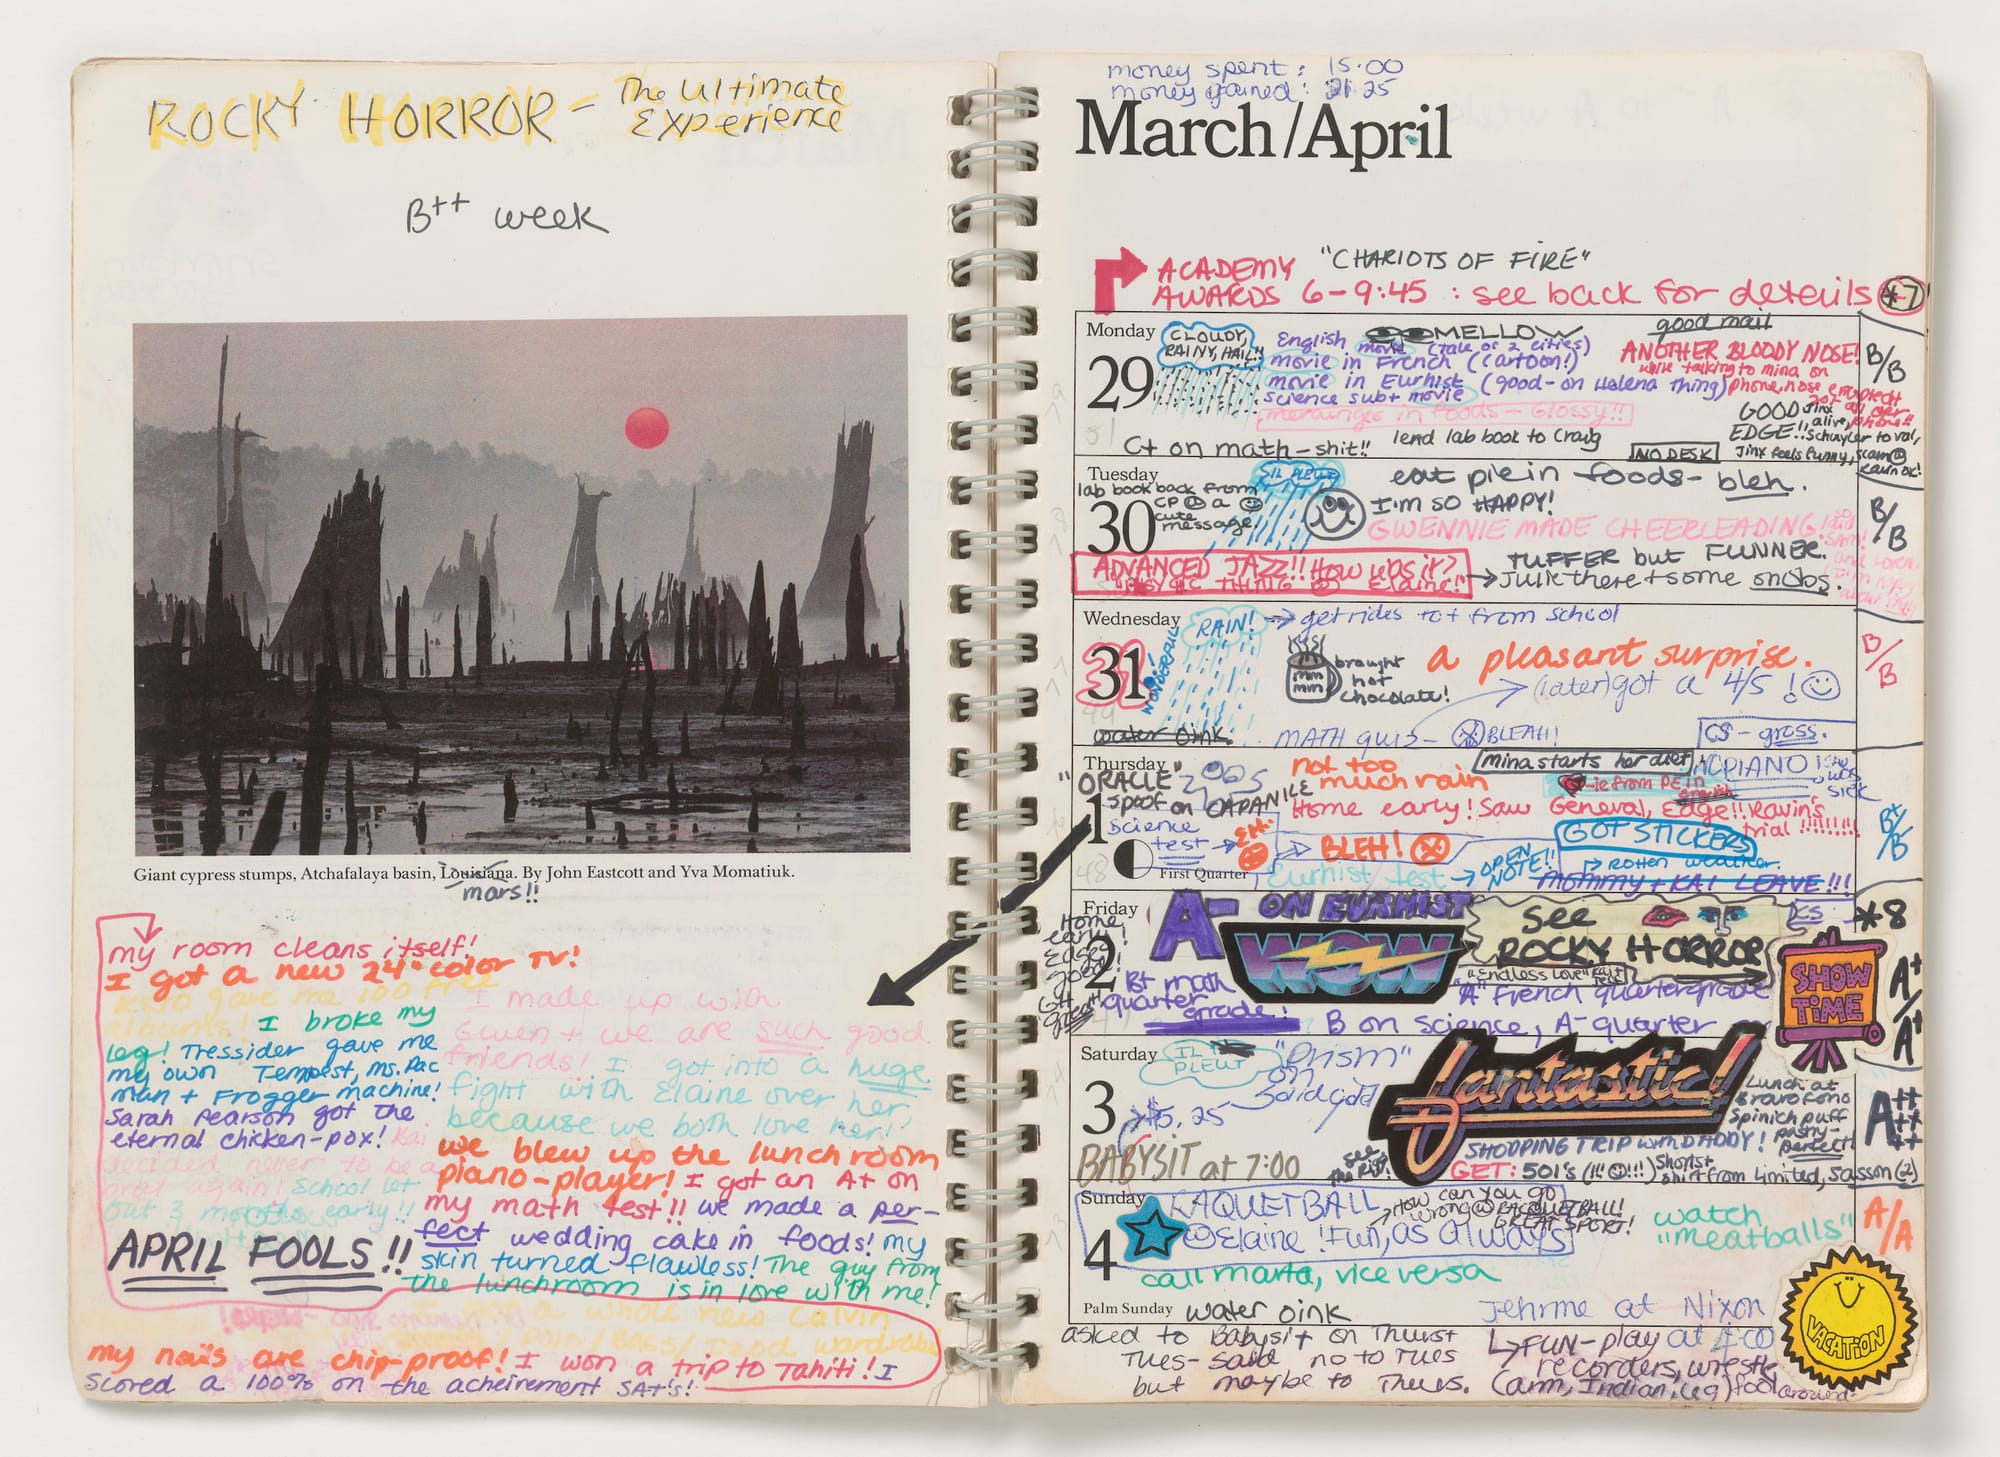 ROCKY HORROR - The Ultimate Experience
B++ week
Giant cypress stumps, Atchafalaya basin, Louisiana. By John Eastcott and Yva Momatiuk.
mars!!
my room cleans itself!
I got a new 24" color TV!
gave me 100 free
albums! I broke my
leg! Tressider gave me
my own Tempest, Ms. Pac
man + Frogger machine!
Sarah Pearson got the
eternal chicken-pox! Kai
decided never to be a
brat again! School let
out 3 months early!!
APRIL FOOLS!!
I made up with
Gwen + we are such good
friends! I got into a huge
fight with Elaine over her
because we both love her!
we blew up the lunch room
piano-player! I got an A+ on
my math test!! we made a per-
fect wedding cake in foods! my
skin turned flawless! The guy from
the lunchroom is in love with me!
I got a whole new Calvin
/ Polo / Bass / Izod wardrobe
my nails are chip-proof! I won a trip to Tahiti! I
scored a 100% on the acheirement SAT's!
money spent: 15.00
money gained: 21.25
March/April
ACADEMY "CHARIOTS OF FIRE"
AWARDS 6-9:45 : see back for details *7
Monday
29
CLOUDY,
RAINY, HAIL!!
MELLOW
good mail
English movie (Tale of 2 cities)
movie in French (cartoon!)
movie in Eurhist (good-on Helena thing)
science sub + movie
merainges in foods - Glossy!!
ANOTHER BLOODY NOSE!
while talking to mina on
phone, nose erupted
all over
phone!!
B/B
GOOD
EDGE!!
Jinx alive,
Schuyler to val,
Jinx feels funny,
C+ on math-shit!!
lend lab book to Craig
NO DESK
Tuesday
30
IL PLEUT
lab book back from
CP a
cute
message
eat pie in foods - bleh.
I'm SO HAPPY!
GWENNIE MADE CHEERLEADING!
B/B
ADVANCED JAZZ!! How was it?
PSYCIC THING Elaine!!
TUFFER but FUNNER.
Julie there + some snobs.
Wednesday
31
RAIN!
WONDERFUL!
get rides to + from school
mm
mm
brought
hot
chocolate!
a pleasant surprise.
(later) got a 4/5!
B/B
water oink.
MATH quiz - BLEAH!
CS - gross.
Thursday
1
"ORACLE"
spoof on CAPANILE
not too
much rain
mina starts her diet
NO PIANO
she
was
sick
-ie from PE in
english
Home early! Saw General, Edge!! Kavin's
trial !!!!!!!!
science
test
BLEH!
GOT STICKERS
B+/B-
First Quarter
Eurhist test
OPEN
NOTE!!
ROTTEN weather.
MOMMY + KAI LEAVE!!!
Friday
2
Home
early!
Edge
good!
GH
great
A- ON EURHIST
WOW
See
ROCKY HORROR
"Endless Love"
*8
SHOW
TIME
A+/A+
B+ math
quarter
grade!
"A" French quarter grade
B on science, A- quarter
Saturday
3
IL
PLEUT
"Prism"
on
Solid Gold
$5.25
BABYSIT at 7:00
fantastic!
Lunch at
Bravo Fono
Spinich puff
pastry-
perfect!
A++
SHOPPING TRIP with DADDY!
GET: 501's (!!!!!) Shorts +
shirt from Limited, Sasson (2)
Sunday
4
Palm Sunday
RAQUETBALL
How can you go
wrong RACQUETBALL!
GREAT SPORT!
Elaine! Fun, as always
call marta, vice versa
watch
"meatballs"
A/A
water oink
Jehrme at Nixon
asked to Babysit on Thurs +
Tues - said no to Tues
but maybe to Thurs.
FUN - play at 4:00
recorders, wrestle
(arm, Indian, leg) fool around
VACATION